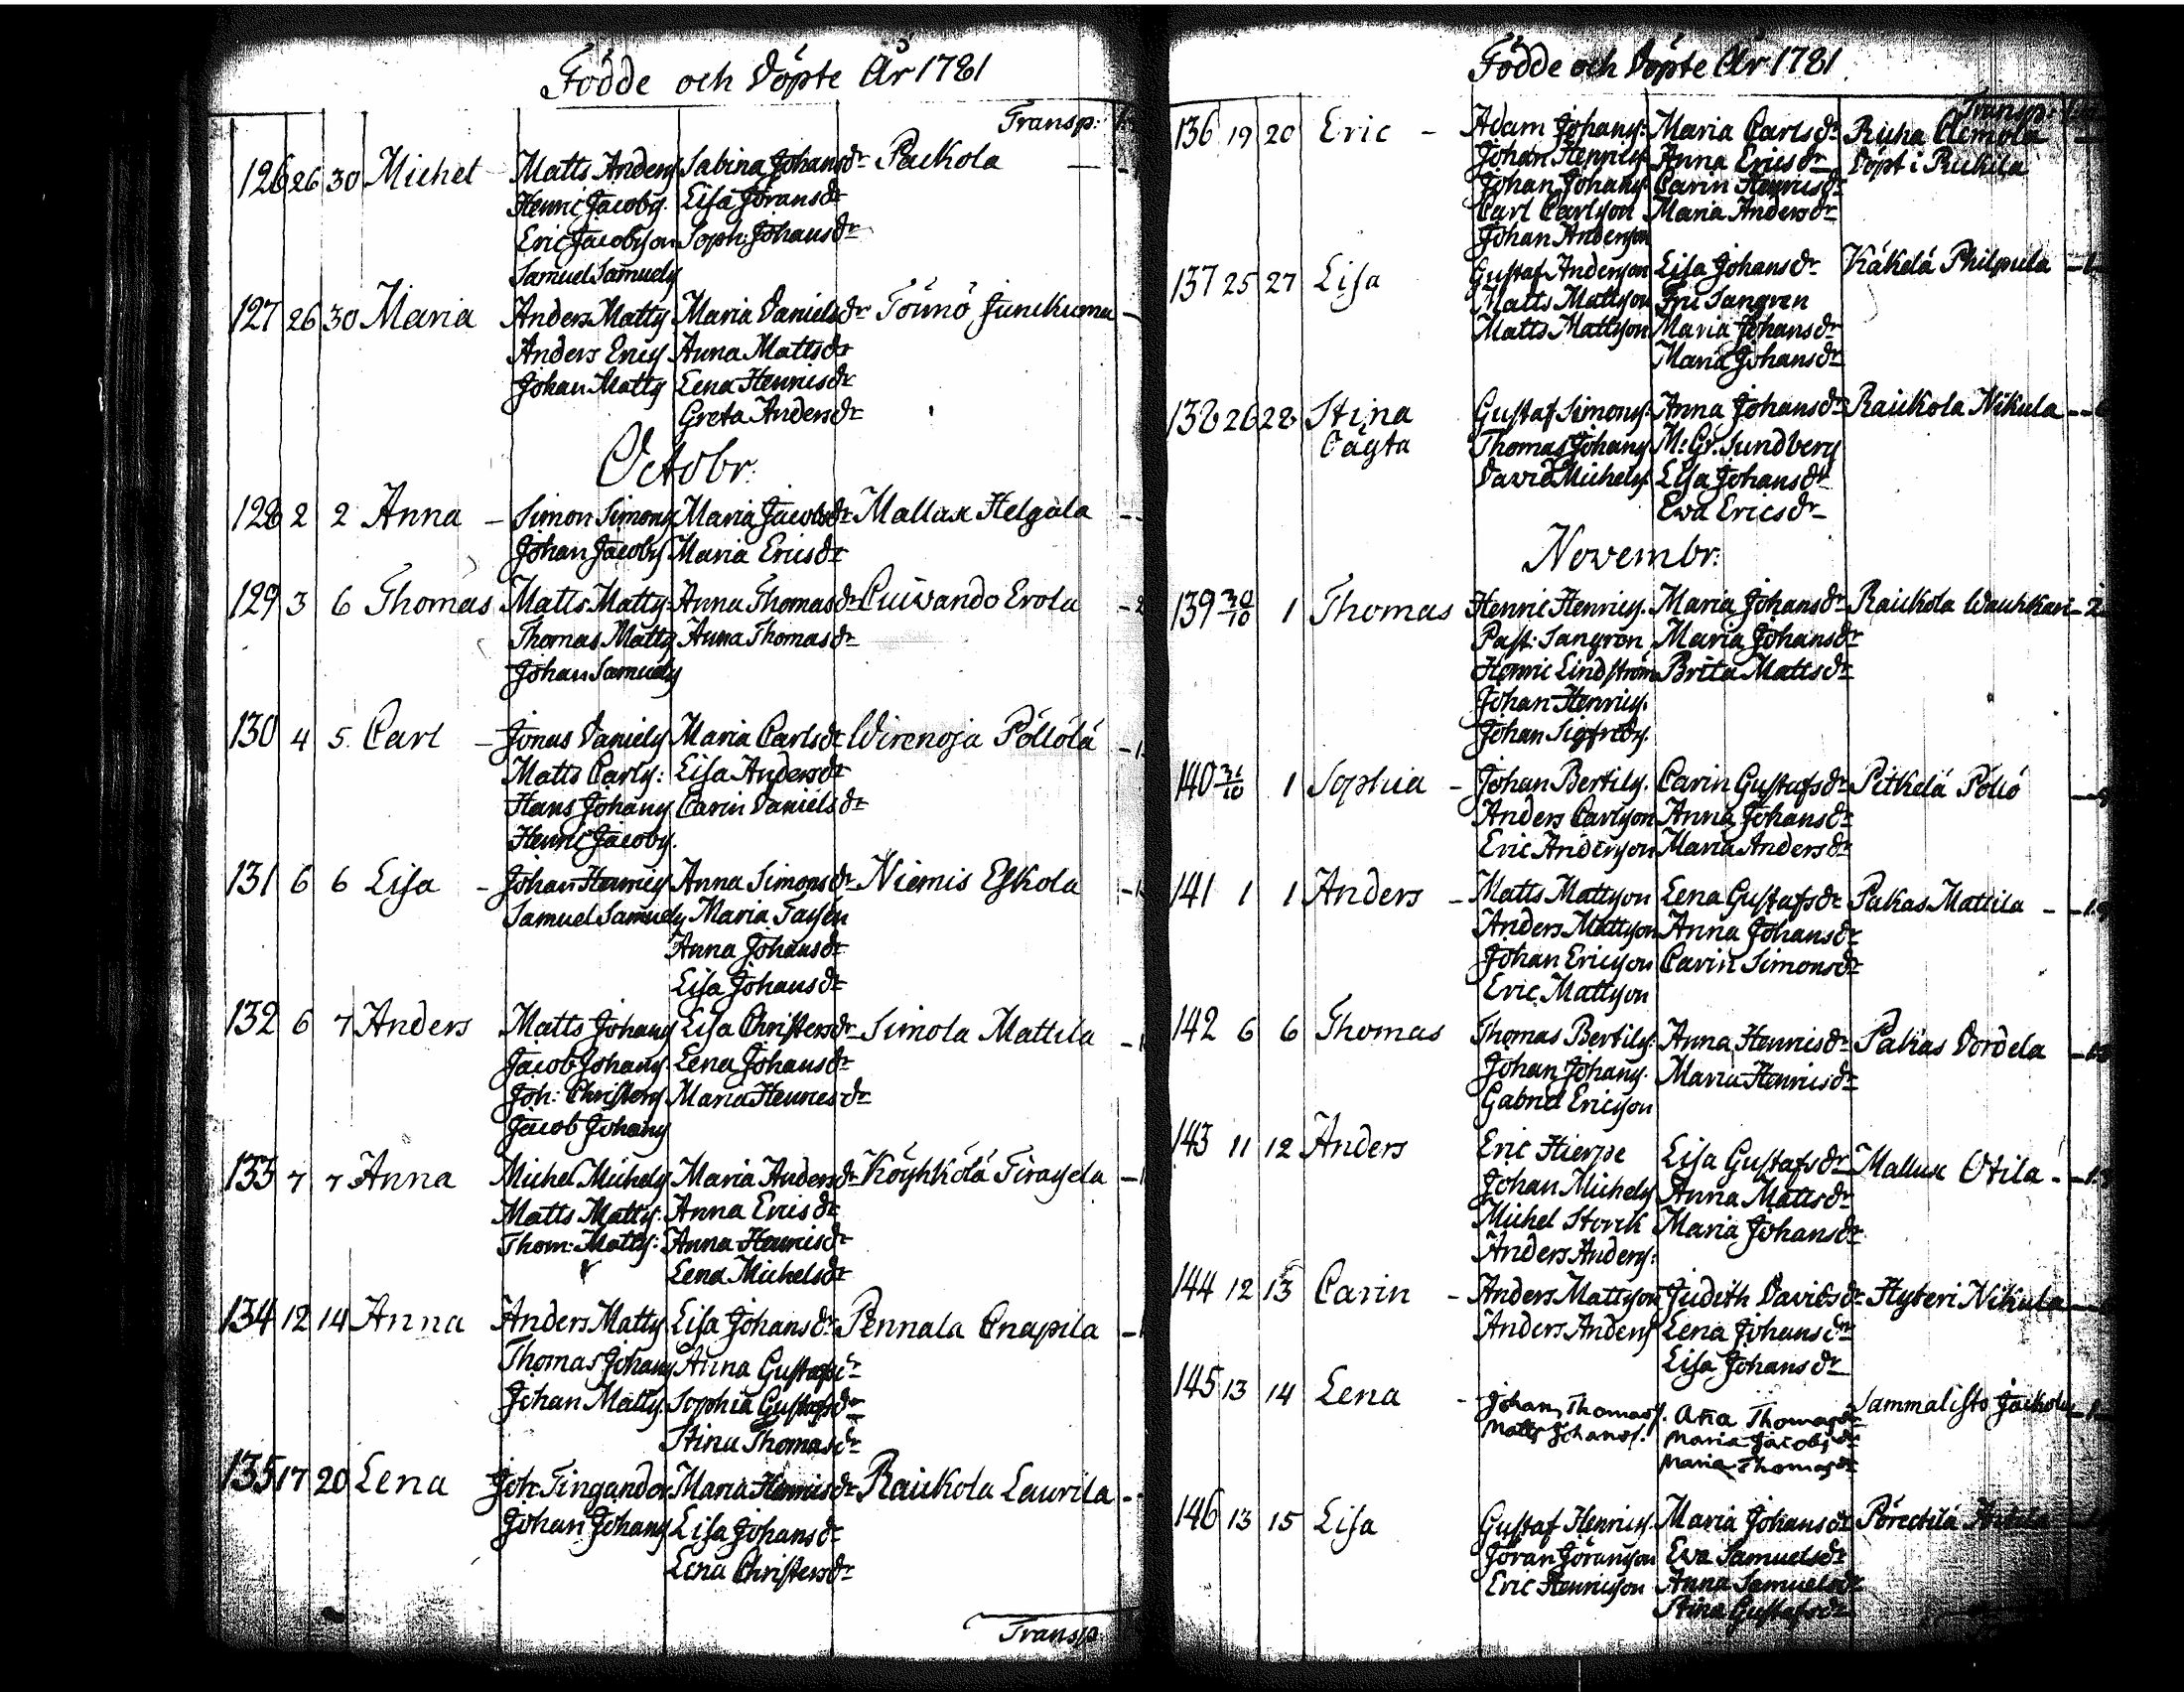 Födde och Döpte År 1781
Transp:
126 26 30 Michel Matts Anders. Sabina Johansdr Paekola
Henric Jacobs. Lisa Jöransdr
Eric Jacobsson Soph: Johansdr
Samuel Samuels.
127 26 30 Maria Anders Matts. Maria Danielsdr Tönnö Junckuma
Anders Erics. Anna Mattsdr
Johan Matts. Lena Henricsdr
Greta Andersdr
Octobr:
128 2 2 Anna - Simon Simons. Maria Jacobsdr Mallax Helgala
Johan Jacobs. Maria Ericsdr
129 3 6 Thomas Matts Matts. Anna Thomasdr Luivando Erola - 2
Thomas Matts. Anna Thomasdr
Johan Samuels.
130 4 5 Carl - Jonas Daniels. Maria Carlsdr Wirenoja Pöllölä - 1
Matts Carls: Lisa Andersdr
Hans Johans. Carin Danielsdr
Henric Jacobs.
131 6 6 Lisa - Johan Henrics. Anna Simonsdr Niemis Eskola - 1
Samuel Samuels. Maria
Anna Johansdr
Lisa Johansdr
132 6 7 Anders Matts Johans. Lisa Christersdr Simola Mattila
Jacob Johans. Lena Johansdr
Joh: Christers. Maria Henricsdr
Jacob Johans.
133 7 7 Anna Michel Michels. Maria Andersdr Köyhkölä - 1
Matts Matts: Anna Ericsdr
Thom: Matts: Anna Henricsdr
Lena Michelsdr
134 12 14 Anna Anders Matts. Lisa Johansdr Pennala Cnapila
Thomas Johans. Anna Gustafsdr
Johan Matts. Sophia Gustafsdr
Stina Thomasdr
135 17 20 Lena Joh: Tingander Maria Henricsdr Raickola Laurila
Johan Johans. Lisa Johansdr
Lena Christersdr
Transp
Födde och Döpte År 1781
Transp:
136 19 20 Eric - Adam Johans: Maria Carlsdr
Johan Henrics. Anna Ericsdr Döpt i
Johan Johans. Carin Henricsdr
Carl Carlsson Maria Andersdr
Johan Andersson
137 25 27 Lisa Gustaf Andersson Lisa Johansdr Käkelä Philpula
Matts Mattsson Fru Tangren
Matts Mattsson Maria Johansdr
Maria Johansdr
138 26 28 Stina Gustaf Simons. Anna Johansdr Raickola Nikula
Cagta Thomas Johans. M: Gr. Sundberg
David Michels. Lisa Johansdr
Ewa Ericsdr
Novembr:
139 30/10 1 Thomas Henric Henrics. Maria Johansdr Raickola Wauhkari - 2
Past: Tangren Maria Johansdr
Henric Lindström Brita Mattsdr
Johan Henrics.
Johan Sigfrids.
140 31/10 1 Sophia - Johan Bertils. Carin Gustafsdr Pitkelä
Anders Carlsson Anna Johansdr
Eric Andersson Maria Andersdr
141 1 1 Anders - Matts Mattsson Lena Gustafsdr Pakas Mattila
Anders Mattsson Anna Johansdr
Johan Ericsson Carin Simonsdr
Eric Mattsson
142 6 6 Thomas Thomas Bertils: Anna Henricsdr Pakas Dordela
Johan Johans. Maria Henricsdr
Gabriel Ericsson
143 11 12 Anders Eric Hierpe Lisa Gustafsdr Mallux Otila
Johan Michels. Anna Mattsdr
Michel Storck Maria Johansdr
Anders Anders:
144 12 13 Carin - Anders Mattsson Judith Davidsdr Hyteri Nikula
Anders Anders. Lena Johansdr
Lisa Johansdr
145 13 14 Lena - Johan Thomass. Aña Thomasdr Sammalisto Jackola
Matts Johans. Maria Jacobsdr
Maria Thomasdr
146 13 15 Lisa Gustaf Henrics. Maria Johansdr
Jöran Jöransson Ewa Samuelsdr
Eric Henricsson Anna Samuelsdr
Stina Gustafsdr